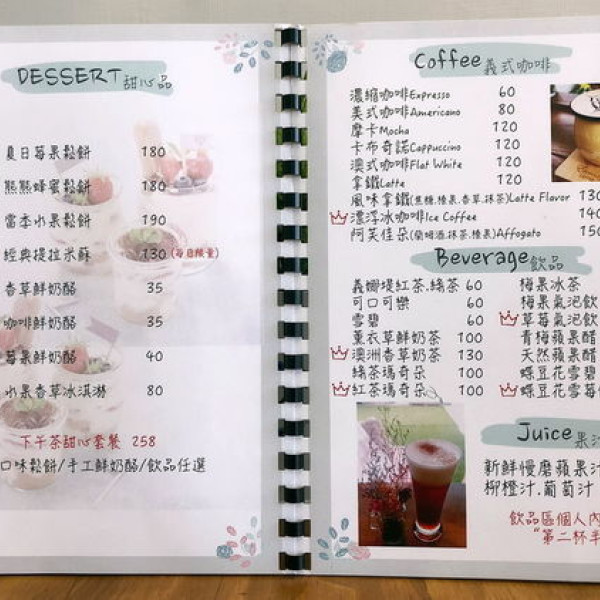 DESSERT 甜心品
夏日莓果鬆餅 180
熊熊蜂蜜鬆餅 180
當季水果鬆餅 190
經典提拉米蘇 130 (每日限量)
香草鮮奶酪 35
咖啡鮮奶酪 35
莓果鮮奶酪 40
水果香草冰淇淋 80
下午茶甜心套餐 258
口味鬆餅/手工鮮奶酪/飲品任選
Coffee 義式咖啡
濃縮咖啡Expresso 60
美式咖啡Americano 80
摩卡Mocha 120
卡布奇諾Cappuccino 120
澳式咖啡Flat White 120
拿鐵Latte 120
風味拿鐵(焦糖.榛果.香草.抹茶)Latte Flavor 130
濃浮冰咖啡Ice Coffee 140
阿芙佳朵(蘭姆酒.抹茶.榛果)Affogato 150
Beverage 飲品
義娜堤紅茶.綠茶 60
可口可樂 60
雪碧 60
薰衣草鮮奶茶 100
澳洲香草奶茶 130
綠茶瑪奇朵 100
紅茶瑪奇朵 100
梅果冰茶
梅果氣泡飲
草莓氣泡飲
青梅蘋果醋
天然蘋果醋
蝶豆花雪碧
蝶豆花雪莓
Juice 果汁
新鮮慢磨蘋果汁
柳橙汁.葡萄汁
飲品區個人內
"第二杯半